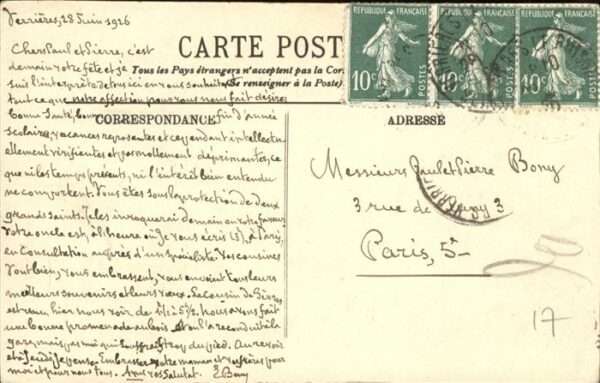 Verrières, 28 Juin 1926
Chers Paul et Pierre, c'est
demain votre fête et je
suis l'interprète de tous ici en vous souhaitant
tout ce que notre affection pour vous nous fait désirer
bonne santé, bonne fin d'année
scolaire, vacances reposantes et cependant intellectu
ellement vérifiantes et pas moralement déprimantes, ce
que ni les temps présents, ni l'intérêt bien entendu
ne comportent. Vous êtes sous la protection de deux
grands saints. Je les invoquerai demain en votre faveur
Votre oncle est, à l'heure où je vous écris (3), à Paris,
en Consultation auprès d'un spécialiste. Vos cousines
vont bien, vous embrassent, vous envoient tous leurs
meilleurs souvenirs et leurs vœux. Le cousin de
est venu hier nous voir de à 5½. Nous avons fait
une bonne promenade au bois et on l'a reconduit à la
gare, mais pas moi qui souffrais trop du pied. Au revoir
et à jeudi je pense. Embrassez votre maman et vos frères pour
moi et pour nous tous. E. Bony
CARTE POST
Tous les Pays étrangers n'acceptent pas la Cor
(Se renseigner à la Poste)
CORRESPONDANCE
ADRESSE
RÉPUBLIQUE FRANÇAISE
10c
POSTES
RÉPUBLIQUE FRANÇAISE
40c
POSTES
RÉPUBLIQUE FRANÇAISE
40c
POSTES
Messieurs Paul et Pierre Bony
3 rue de 3
Paris, 5e
17